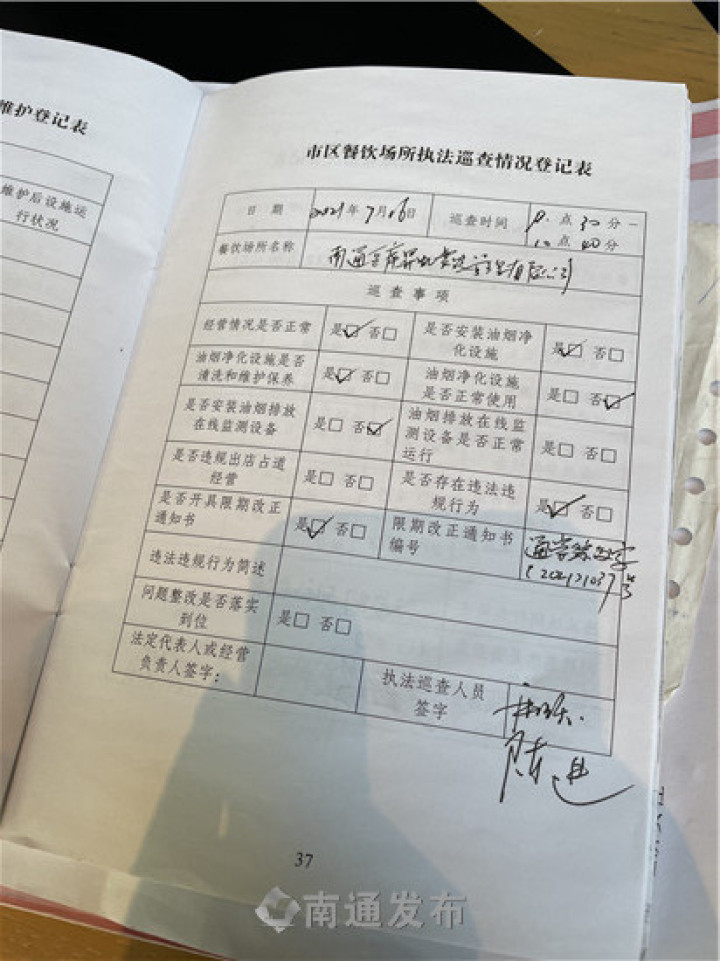 维护登记表
维护后设施运
行状况
市区餐饮场所执法巡查情况登记表
日 期 2021年7月16日 巡查时间 9点30分-
10点40分
餐饮场所名称 南通
巡 查 事 项
经营情况是否正常 是☑ 否□ 是否安装油烟净
化设施 是☑ 否□
油烟净化设施是否
清洗和维护保养 是☑ 否□ 油烟净化设施
是否正常使用 是□ 否☑
是否安装油烟排放
在线监测设备 是□ 否☑ 油烟排放在线监
测设备是否正常
运行 是□ 否□
是否违规出店占道
经营 是□ 否□ 是否存在违法违
规行为 是☑ 否□
是否开具限期改正
通知书 是☑ 否□ 限期改正通知书
编号 字
号
违法违规行为简述
问题整改是否落实
到位 是□ 否□
法定代表人或经营
负责人签字: 执法巡查人员
签字
37
南通发布